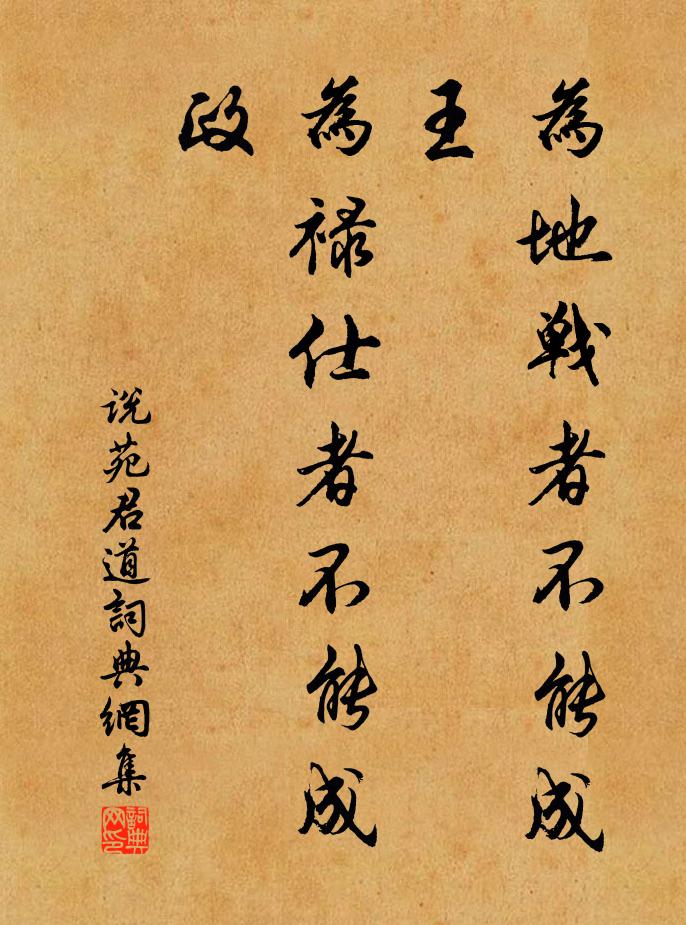 為地戰者不能成
王
為祿仕者不能成
政
說苑君道詞典網集
詞典网印